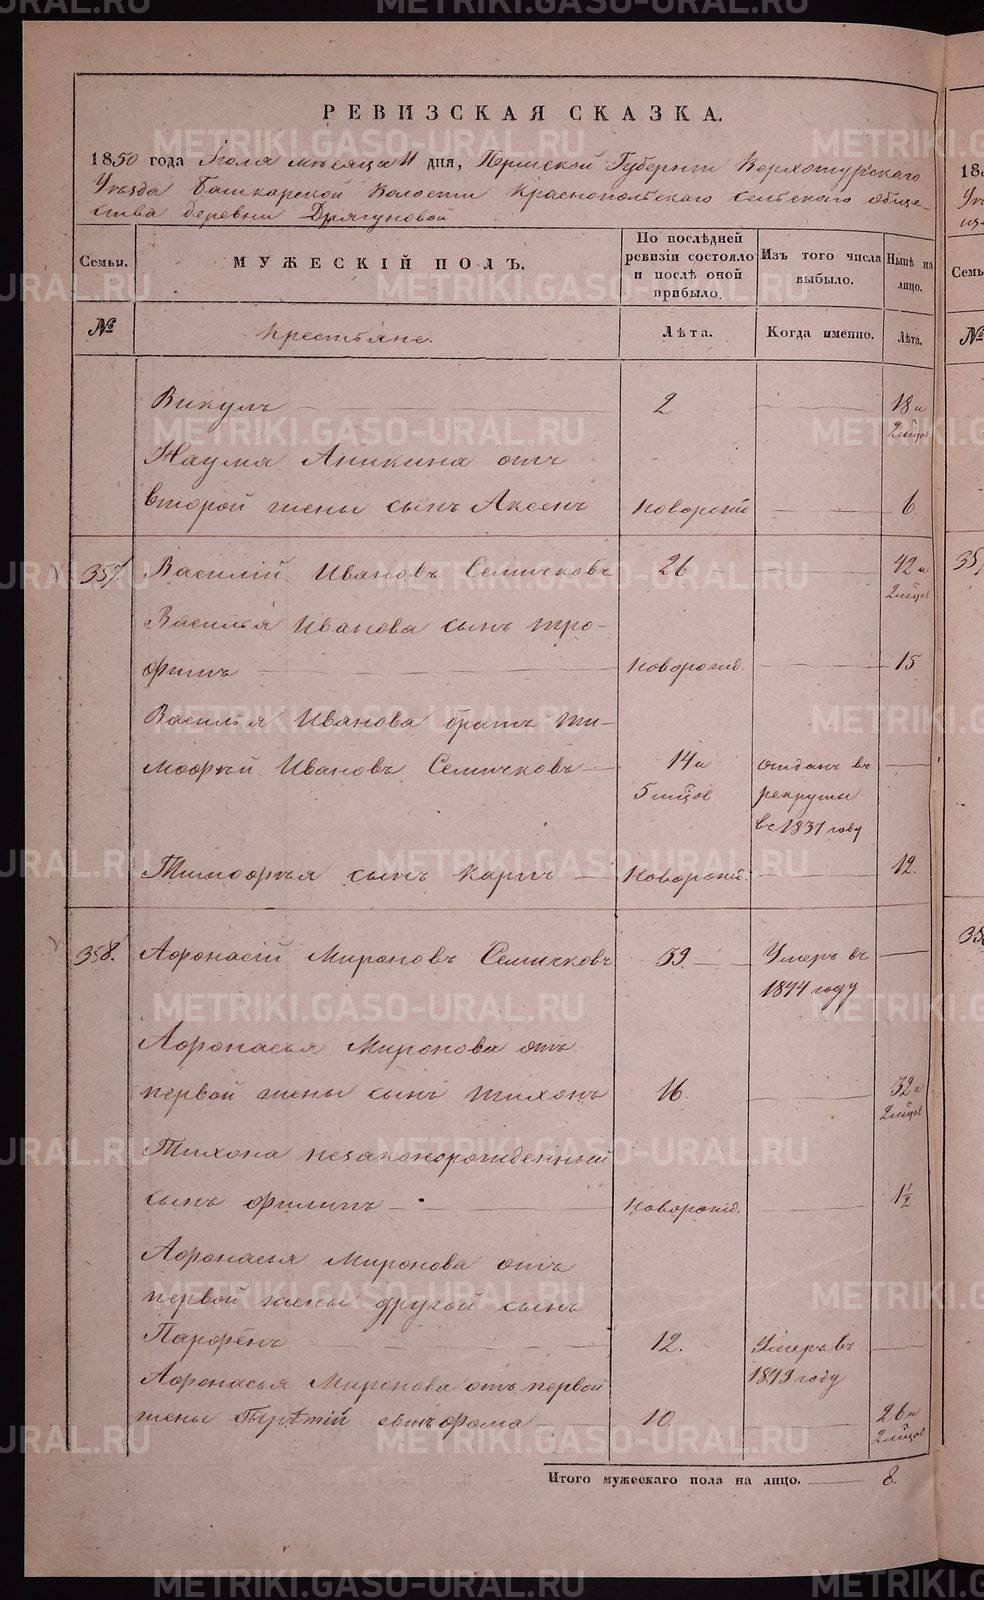 РЕВИЗСКАЯ СКАЗКА.
1850 года Июля мѣсяца 11 дня, Пермской Губерніи Верхотурскаго
Уѣзда Башкарской Волости Краснопольскаго сельскаго обще-
ства деревни Дрягуновой
Семьи. МУЖЕСКІЙ ПОЛЪ. По послѣдней ревизіи состояло и послѣ оной прибыло. Изъ того числа выбыло. Нынѣ на лицо.
№ Крестьяне. Лѣта. Когда именно. Лѣта.
Викулъ 2 18 и
2 мѣсяцов
Наума Аникина отъ
второй жены сынъ Аксенъ новорожд 6.
357. Василій Ивановъ Семичковъ 26 42 и
2 мѣсяцов
Василья Иванова сынъ Тро-
фимъ новорожд. 15
Василья Иванова братъ Ти-
мофѣй Ивановъ Семичковъ 14 и отданъ въ
5 мѣсяцов рекруты
въ 1837 году
Тимофѣя сынъ Карпъ новорожд. 12.
358. Афонасій Мироновъ Семичковъ 39. Умеръ въ
1844 году
Афонасья Миронова отъ
первой жены сынъ Тихонъ 16. 32 и
2 мѣсяцов
Тихона незаконорожденный
сынъ Филипъ новорожд. 1½
Афонасья Миронова отъ
первой жены другой сынъ
Парфенъ 12. Умеръ въ
1843 году
Афонасья Миронова отъ первой
жены Третій сынъ Фома 10. 26 и
2 мѣсяцов
Итого мужескаго пола на лицо. 8.
METRIKI.GASO-URAL.RU